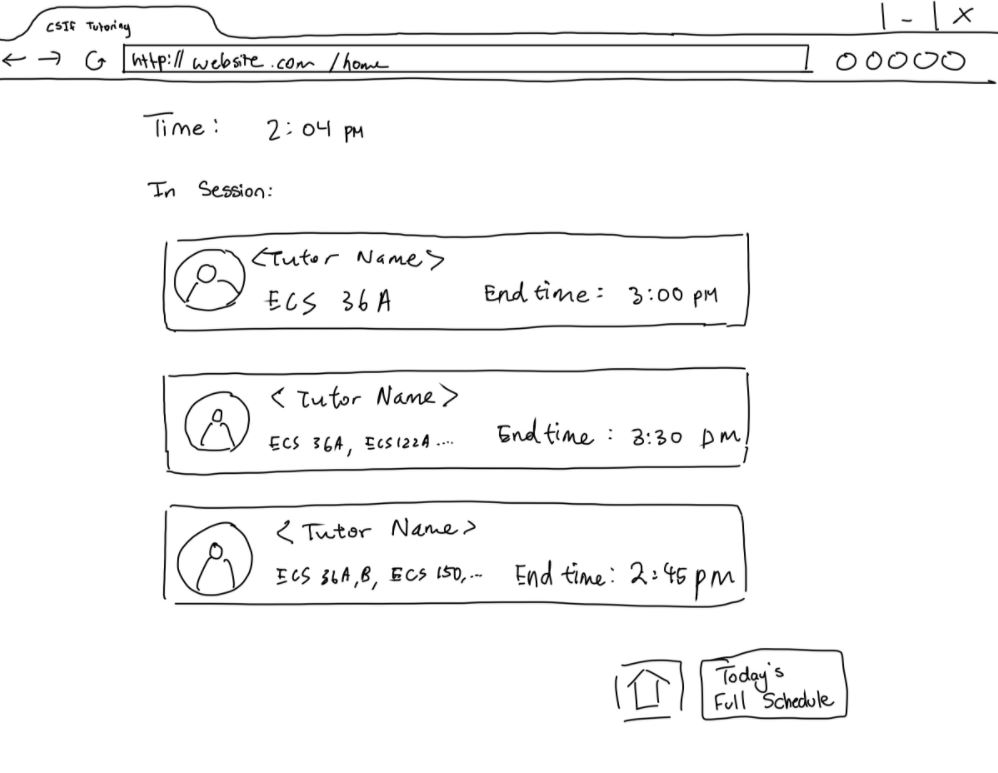 CSIF Tutoring
http:// website.com /home
Time: 2:04 PM
In Session:
<Tutor Name>
ECS 36A End time: 3:00 PM
<Tutor Name>
ECS 36A, ECS122A.... End time: 3:30 PM
<Tutor Name>
ECS 36A,B, ECS 150,... End time: 2:45 pm
Today's
Full Schedule